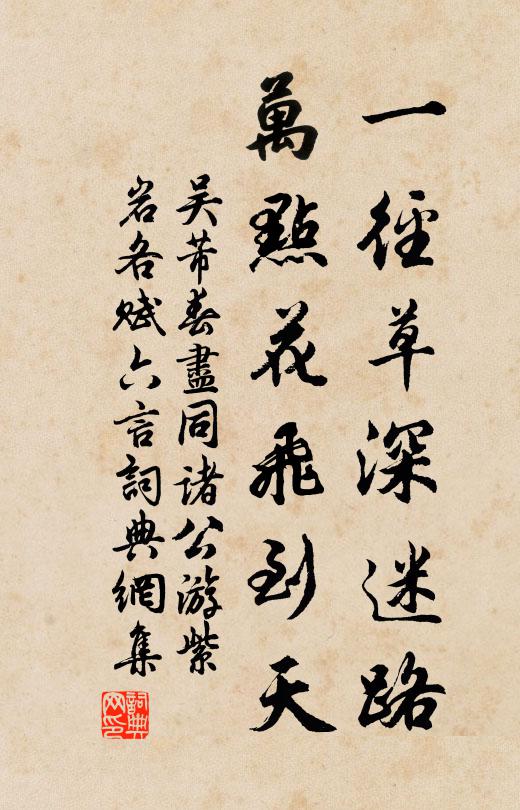 一徑草深迷路
萬點花飛到天
吴芾春盡同諸公游紫
岩各赋六言詞典網集
詞典
网印